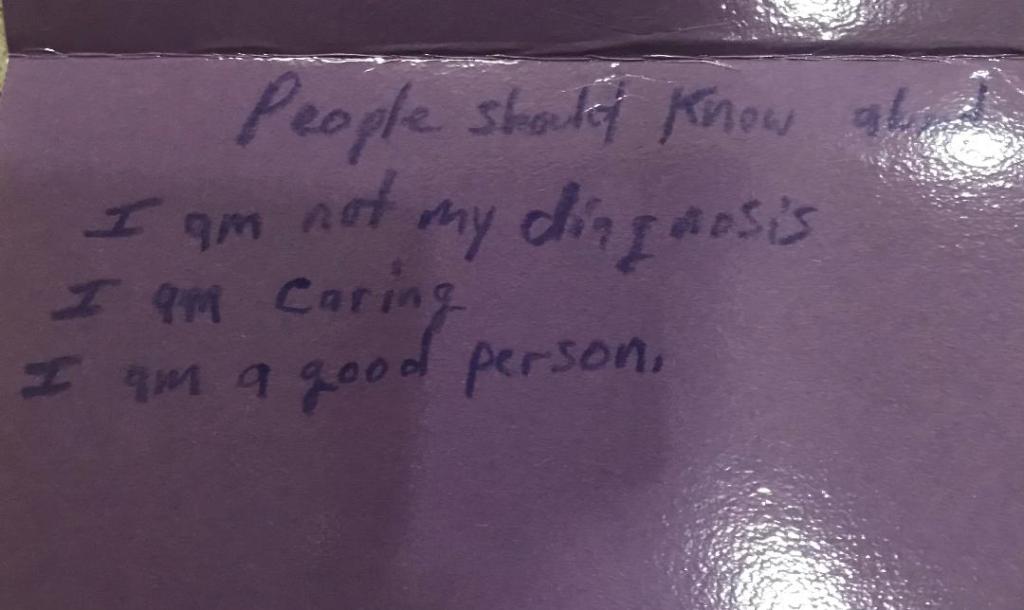 People should know about
I am not my diagnosis
I am caring
I am a good person.